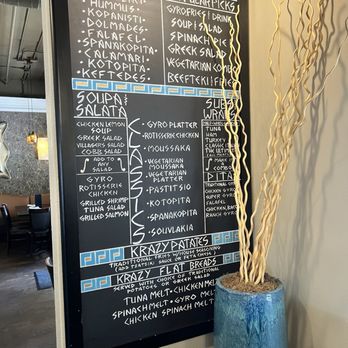 HUMMUS
KOPANISTI
DOLMADES
FALAFELS
SPANAKOPITA
CALAMARI
KOTOPITA
KEFTEDES
GYRO FRIES/DRINK
SOUP/SALAD
SPINACH PIE
GREEK SALAD
VEGETARIAN COMBO
BEEFTEKI/FRIES
SOUPA &
SALATA
CHICKEN LEMON
SOUP
GREEK SALAD
VILLAGERS SALAD
COBB SALAD
ADD TO ANY
SALAD
GYRO
ROTISSERIE
CHICKEN
GRILLED SHRIMP
TUNA SALAD
GRILLED SALMON
CLASSICS
• GYRO PLATTER
• ROTISSERIE CHICKEN
• MOUSSAKA
• VEGETARIAN
MOUSSAKA
• VEGETARIAN
PLATTER
• PASTITSIO
• KOTOPITA
• SPANAKOPITA
• SOUVLAKIA
SUBS
WRAPS
TUNA
HAM
MAKE IT
COMBO
PITA
KRAZY PATATES
TRADITIONAL FRIES W/HOUSE SEASONING
(ADD TZATZIKI SAUCE OR FETA CHEESE)
KRAZY FLAT BREADS
SERVED WITH CHOICE OF TRADITIONAL
POTATOES OR GREEK SALAD
TUNA MELT • CHICKEN MELT
SPINACH MELT • GYRO MELT
CHICKEN SPINACH MELT